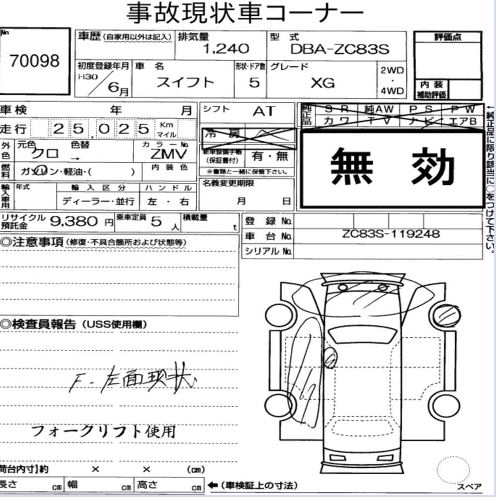 事故現状車コーナー
No 70098
車歴 (自家用以外は記入) 排気量 1,240 型式 DBA-ZC83S
評価点
初度登録年月 H30 6月 車名 スイフト 形状・ドア数 5 グレード XG 2WD・4WD
内装補助評価
車検 年 月 シフト AT 純正品 SR 純AW PS PW
カワ TV ナビ エアB
走行 25,025 Km マイル 冷房
外色 元色 クロ 色替 → カラーNo. ZMV (保証書付) 有・無
無効
燃料 ガソリン・軽油・( ) 内装色 ※書類と一緒に保管下さい。
輸入車用 年式 輸入区分 ディーラー・並行 ハンドル 左・右 名義変更期限 月 日
←純正品に限り該当に○をつけて下さい。
リサイクル預託金 9,380円 乗車定員 5人 積載量 t 登録No.
車台No. ZC83S-119248
シリアルNo.
◎注意事項 (修復・不具合箇所および状態等)
◎検査員報告 (USS使用欄)
F・左面現状
フォークリフト使用
荷台内寸)約 × × (cm)
長さ cm 幅 cm 高さ cm ←(車検証上の寸法)
スペア